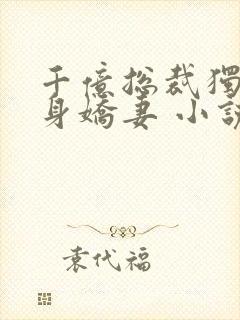 千億总裁獨
身嬌妻 小説
袁代福